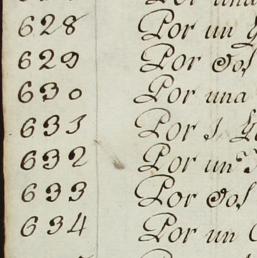 Por una
628 Por un
629 Por dos
630 Por una
631 Por 1
632 Por un
633 Por dos
634 Por un